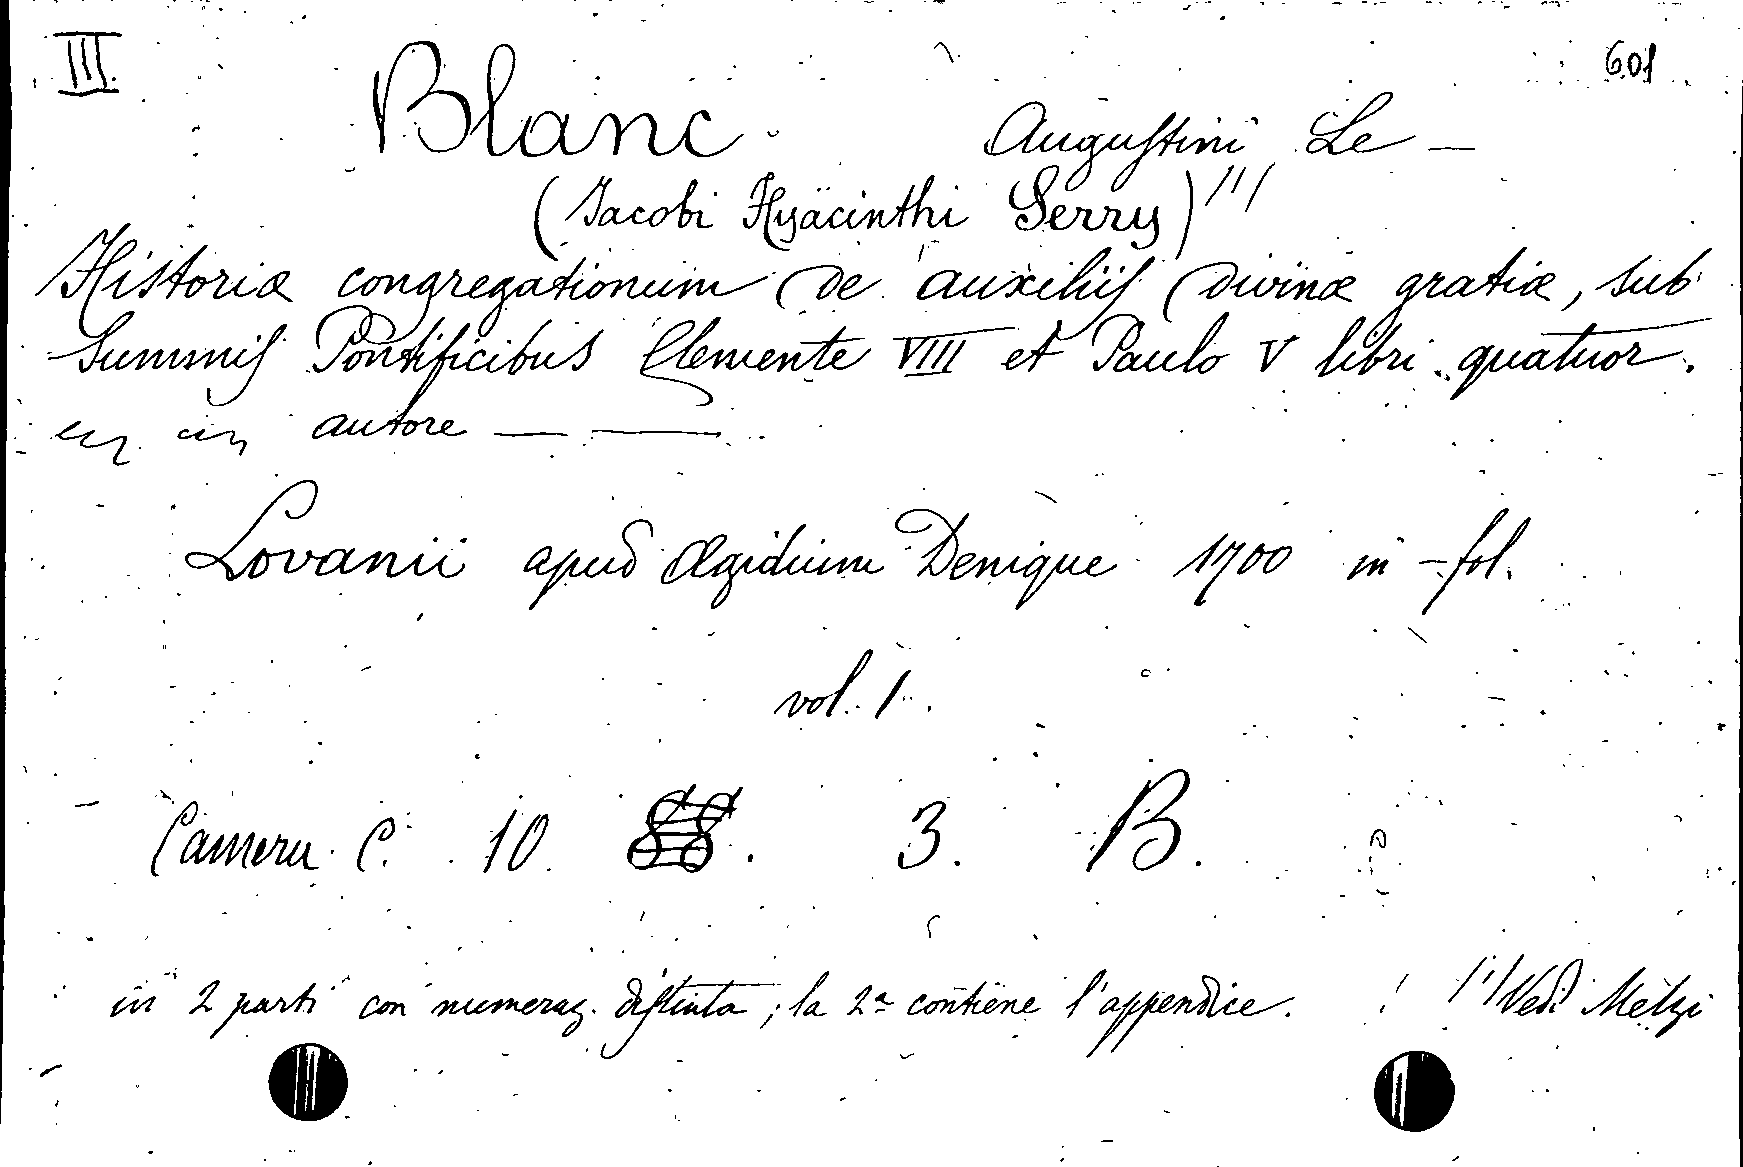 III. 601
Blanc Augustini Le —
(Jacobi Hyacinthi Serry) (1)
Historiæ congregationum de auxiliis divinæ gratiæ, sub
Summis Pontificibus Clemente VIII et Paulo V libri quatuor.
autore — —
Lovanii apud Ægidium Denique 1700 in-fol.
vol. 1.
Camera C. 10. 3. B.
in 2 parti con numeraz. distinta; la 2ª contiene l'appendice. (1) Vedi Melzi